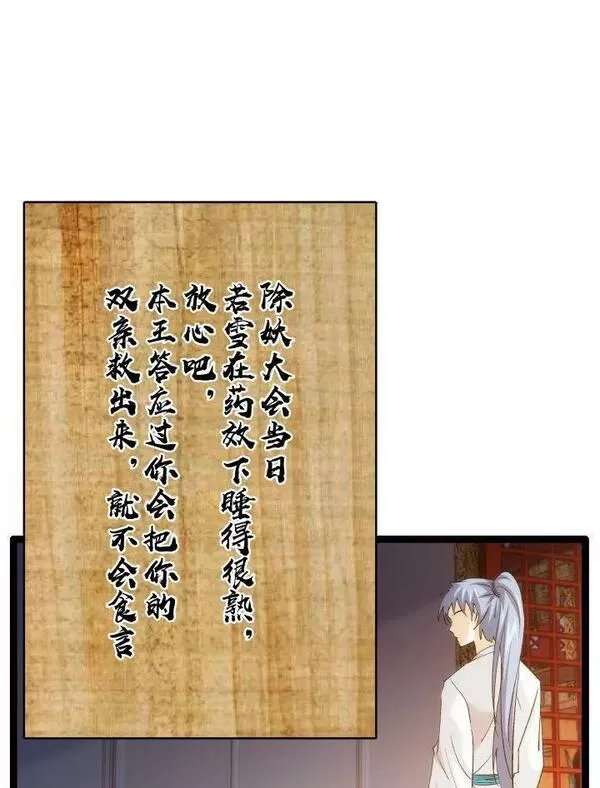 除妖大会当日
若雪在药效下睡得很熟，
放心吧，
本王答应过你会把你的
双亲救出来，就不会食言